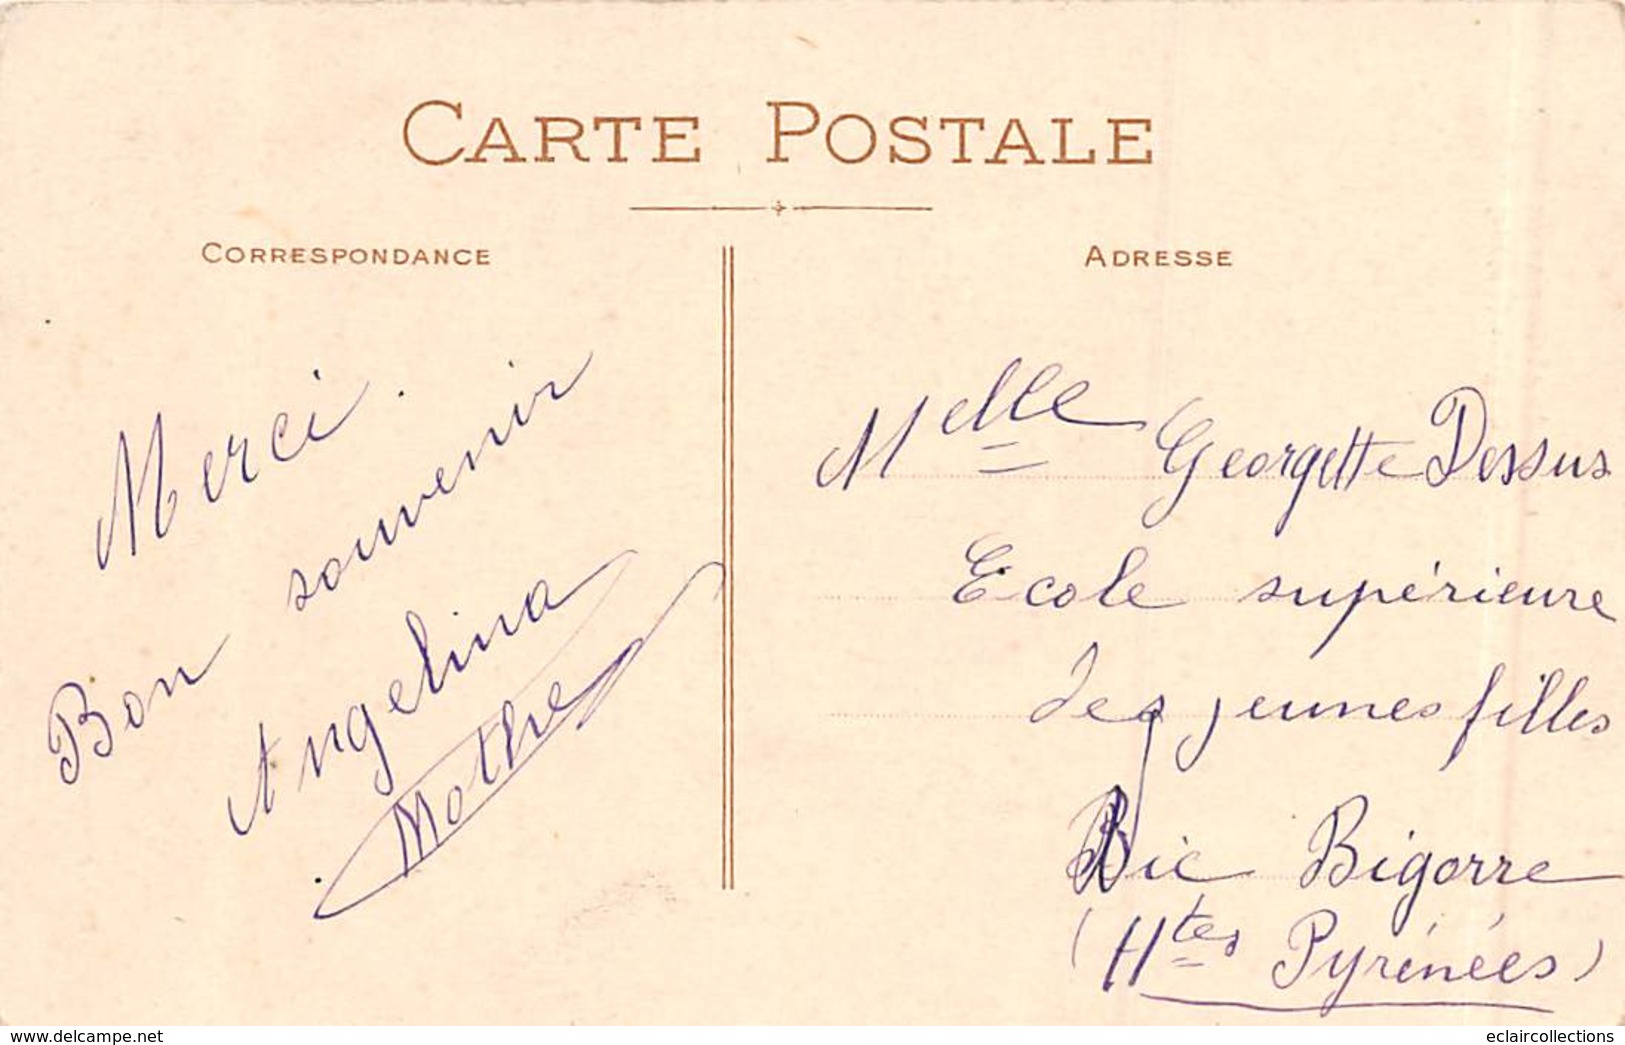 CARTE POSTALE
CORRESPONDANCE
ADRESSE
Merci.
Bon souvenir
Angelina
Mothe
Melle Georgette Dessus
Ecole supérieure
des jeunes filles
Vic Bigorre
(Htes Pyrénées)
www.delcampe.net
eclaircollections